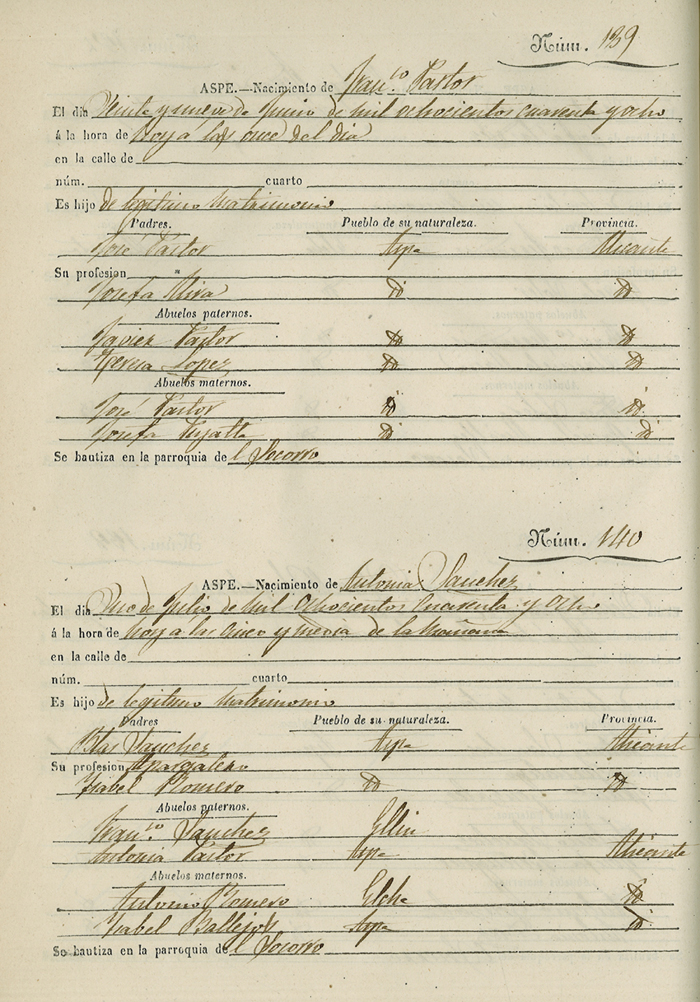 Núm. 139
ASPE.—Nacimiento de Franco. Pastor
El dia Veinte y nueve de Junio de mil ochocientos cuarenta y ocho
á la hora de hoy a las once del dia
en la calle de
núm. cuarto
Es hijo de legitimo Matrimonio
Padres. Pueblo de su naturaleza. Provincia.
José Pastor Aspe Alicante
Su profesion
Josefa Mira Id Id
Abuelos paternos.
Javier Pastor Id Id
Teresa Lopez Id Id
Abuelos maternos.
José Pastor Id Id
Josefa Id Id
Se bautiza en la parroquia de l Socorro
Núm. 140
ASPE.—Nacimiento de Antonia Sanchez
El dia de Julio de mil Ochocientos Cuarenta y Ocho
á la hora de hoy a las Cinco y media de la Mañana
en la calle de
núm. cuarto
Es hijo de legitimo Matrimonio
Padres Pueblo de su naturaleza. Provincia.
Blas Sanchez Aspe Alicante
Su profesion
Isabel Romero Id Id
Abuelos paternos.
Franco. Sanchez Ellin
Antonia Pastor Aspe Alicante
Abuelos maternos.
Antonio Romero Elche Id
Isabel Aspe Id
Se bautiza en la parroquia de l Socorro